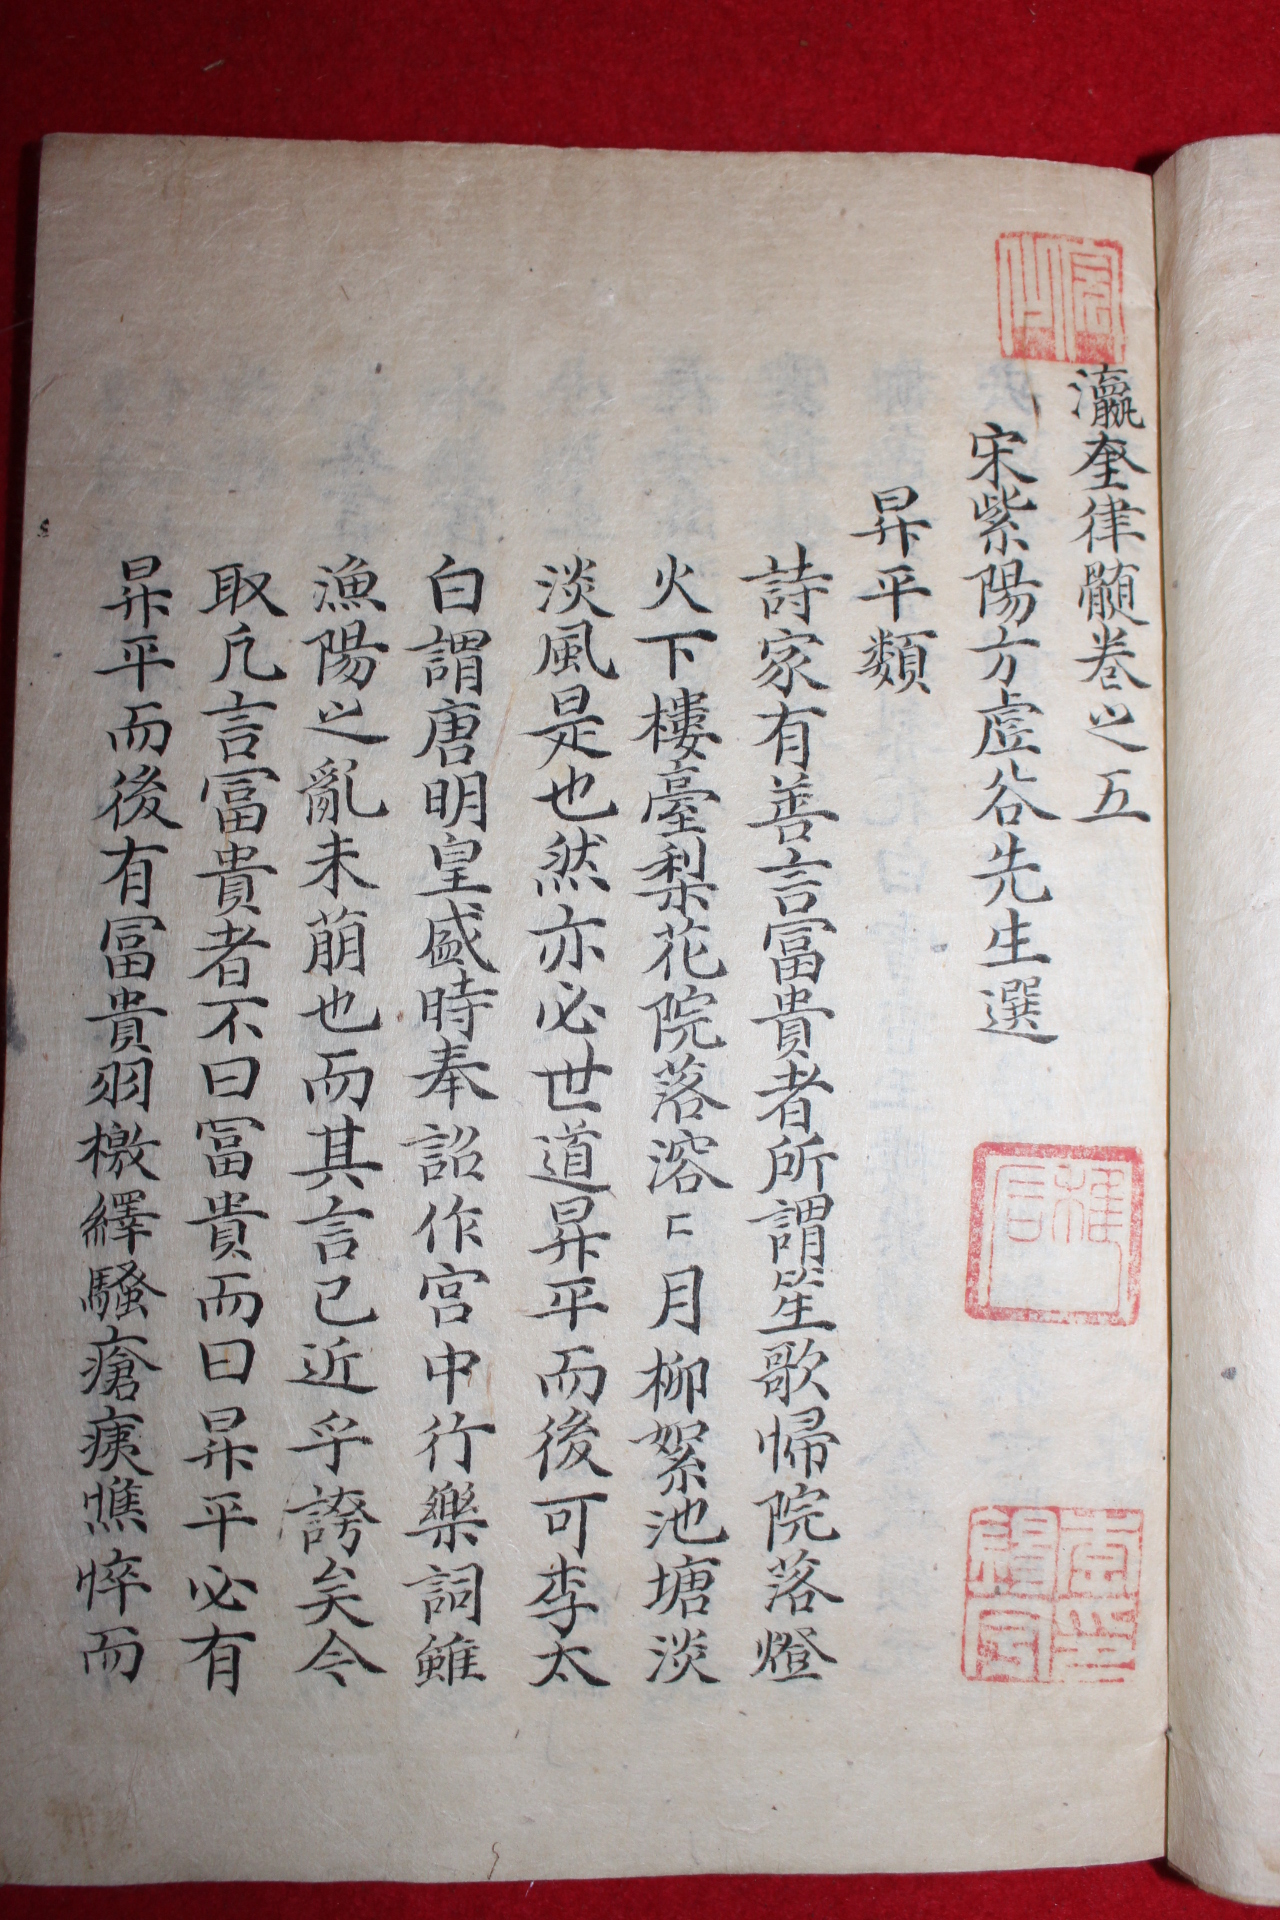 瀛奎律髓卷之五
宋紫陽方虛谷先生選
昇平類
詩家有善言冨貴者所謂笙歌歸院落燈
火下樓臺梨花院落溶〻月柳絮池塘淡
淡風是也然亦必世道昇平而後可李太
白謂唐明皇盛時奉詔作宮中行樂詞雖
漁陽之亂未萠也而其言已近乎誇矣今
取凡言冨貴者不曰冨貴而曰昇平必有
昇平而後有冨貴羽檄繹騷瘡痍憔悴而